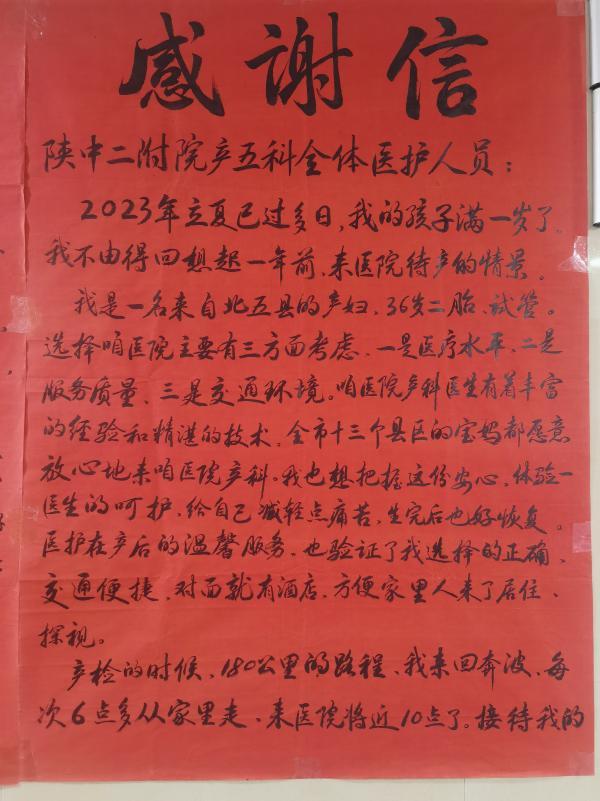 感谢信
陕中二附院产五科全体医护人员：
2023年立夏已过多日，我的孩子满一岁了。
我不由得回想起一年前，来医院待产的情景。
我是一名来自北五县的产妇，36岁二胎、试管。
选择咱医院主要有三方面考虑，一是医疗水平，二是
服务质量，三是交通环境。咱医院产科医生有着丰富
的经验和精湛的技术，全市十三个县区的宝妈都愿意
放心地来咱医院产科。我也想把握这份安心，体验一
医生的呵护，给自己减轻点痛苦，生完后也好恢复。
医护在产后的温馨服务，也验证了我选择的正确，
交通便捷，对面就有酒店，方便家里人来了居住、
探视。
产检的时候，180公里的路程，我来回奔波，每
次6点多从家里走，来医院将近10点了。接待我的